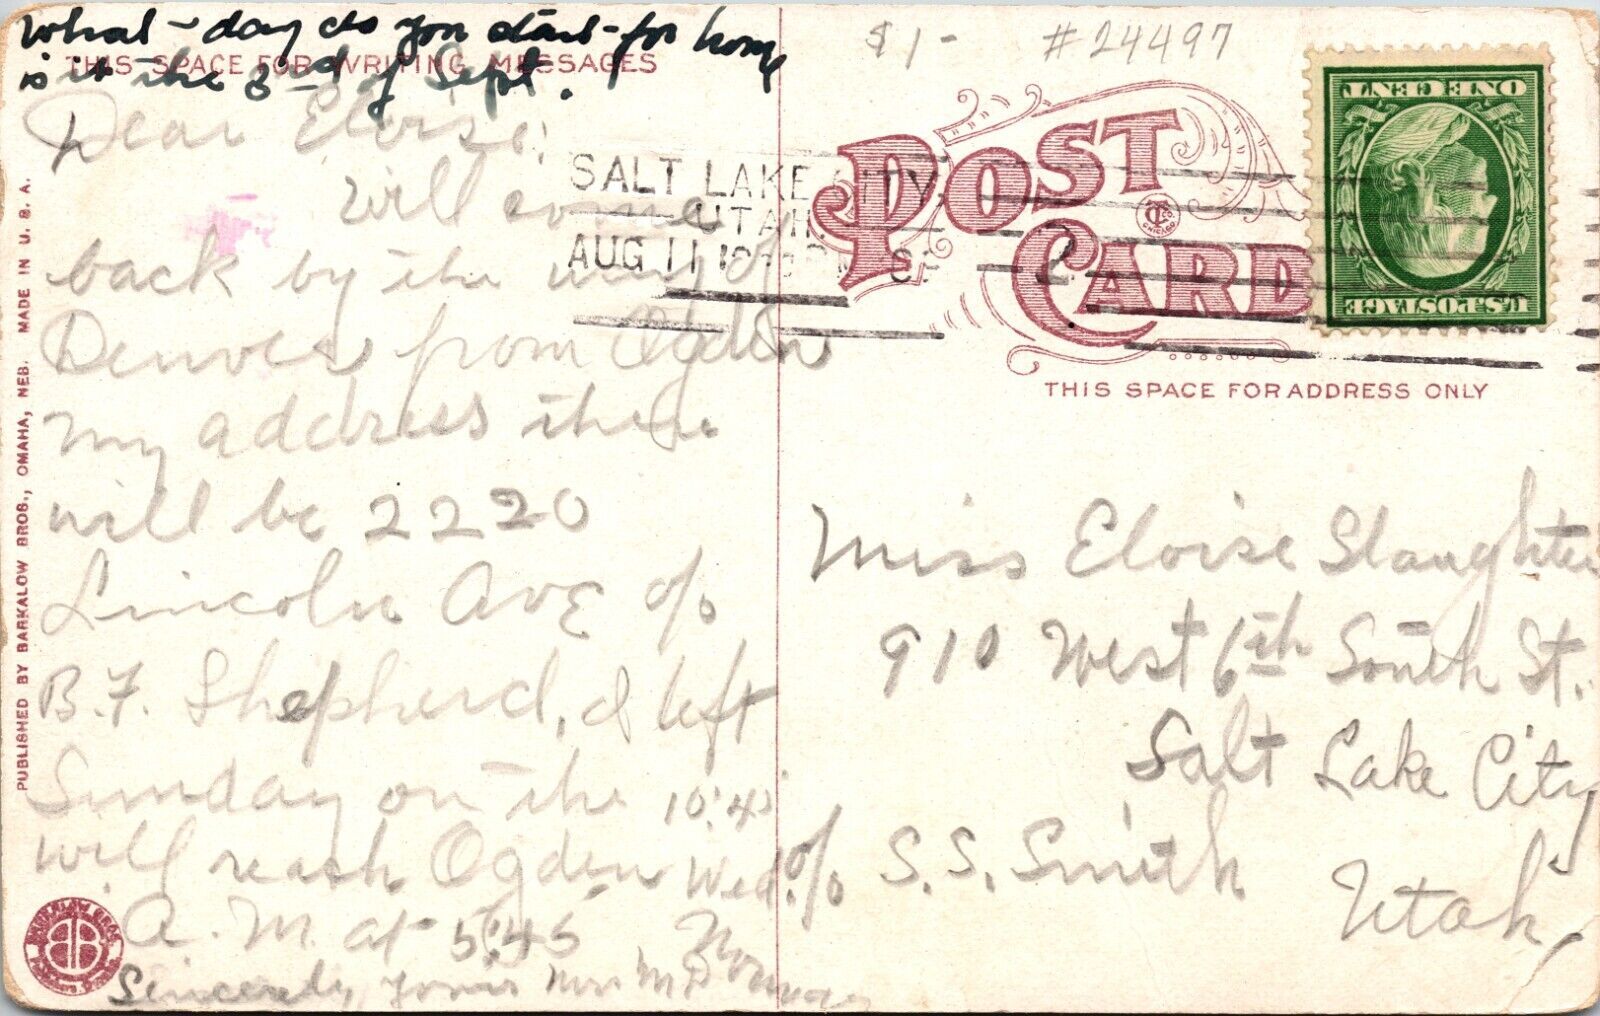 What day do you start for home
is it the 3rd of Sept.
THIS SPACE FOR WRITING MESSAGES
Dear Eloise,
Will come
back by the way of
Denver from Ogden
my address there
will be 2220
Lincoln Ave c/o
B.F. Shepherd, I left
Sunday on the 10:45
will reach Ogden Wed.
A.M. at 5:45
Sincerely, yours Mrs M
PUBLISHED BY BARKALOW BROS., OMAHA, NEB. MADE IN U.S.A.
BARKALOW BROS
$1- #24497
SALT LAKE CITY,
UTAH.
AUG 11
POST
CARD
CHICAGO
U.S. POSTAGE
ONE CENT
THIS SPACE FOR ADDRESS ONLY
Miss Eloise Slaughter
910 West 6th South St.
Salt Lake City
c/o S.S. Smith
Utah,